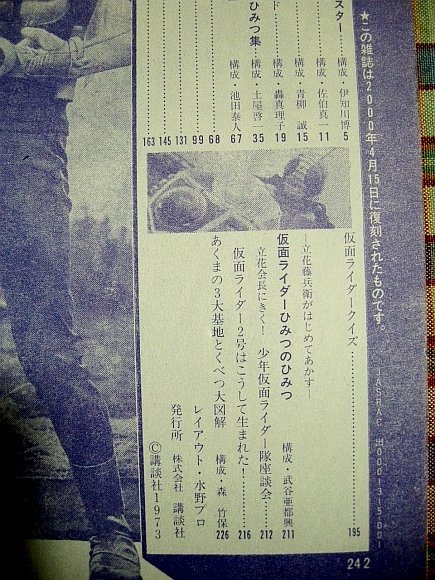 ★この雑誌は2000年4月15日に復刻されたものです。
スター
構成・伊知川博 5
構成・佐伯真一 11
構成・青柳 誠 15
ド
構成・轟真理子 19
ひみつ集
構成・土屋啓 35
構成・池田泰人 67
68
99
131
145
163
仮面ライダークイズ 195
―立花藤兵衛がはじめてあかす―
仮面ライダーひみつのひみつ 構成・武谷亜都興 211
立花会長にきく! 少年仮面ライダー隊座談会 212
仮面ライダー2号はこうして生まれた! 216
あくまの3大基地とくべつ大図解 構成・森 竹保 226
レイアウト・水野プロ
発行所 株式会社 講談社
©講談社1973
242